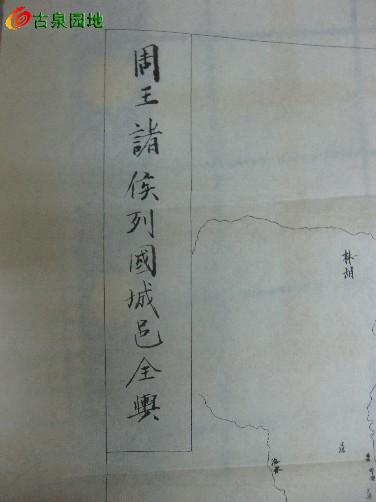 古泉园地
周王諸侯列國城邑全輿
林胡